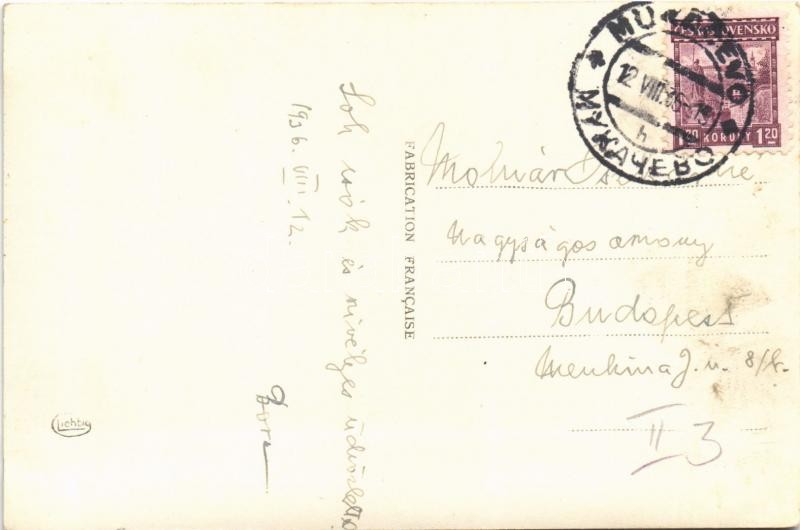 1936. VIII. 12.
Sok csók és szívélyes üdvözlet
Dora
FABRICATION FRANÇAISE
Lichtig
MUKAČEVO
12.VIII.36-15
h
МУКАЧЕВО
ČESKOSLOVENSKO
1.20 KORUNY 1.20
Molnár
Nagyságos asszony
Budapest
J. u. 8/
II 3